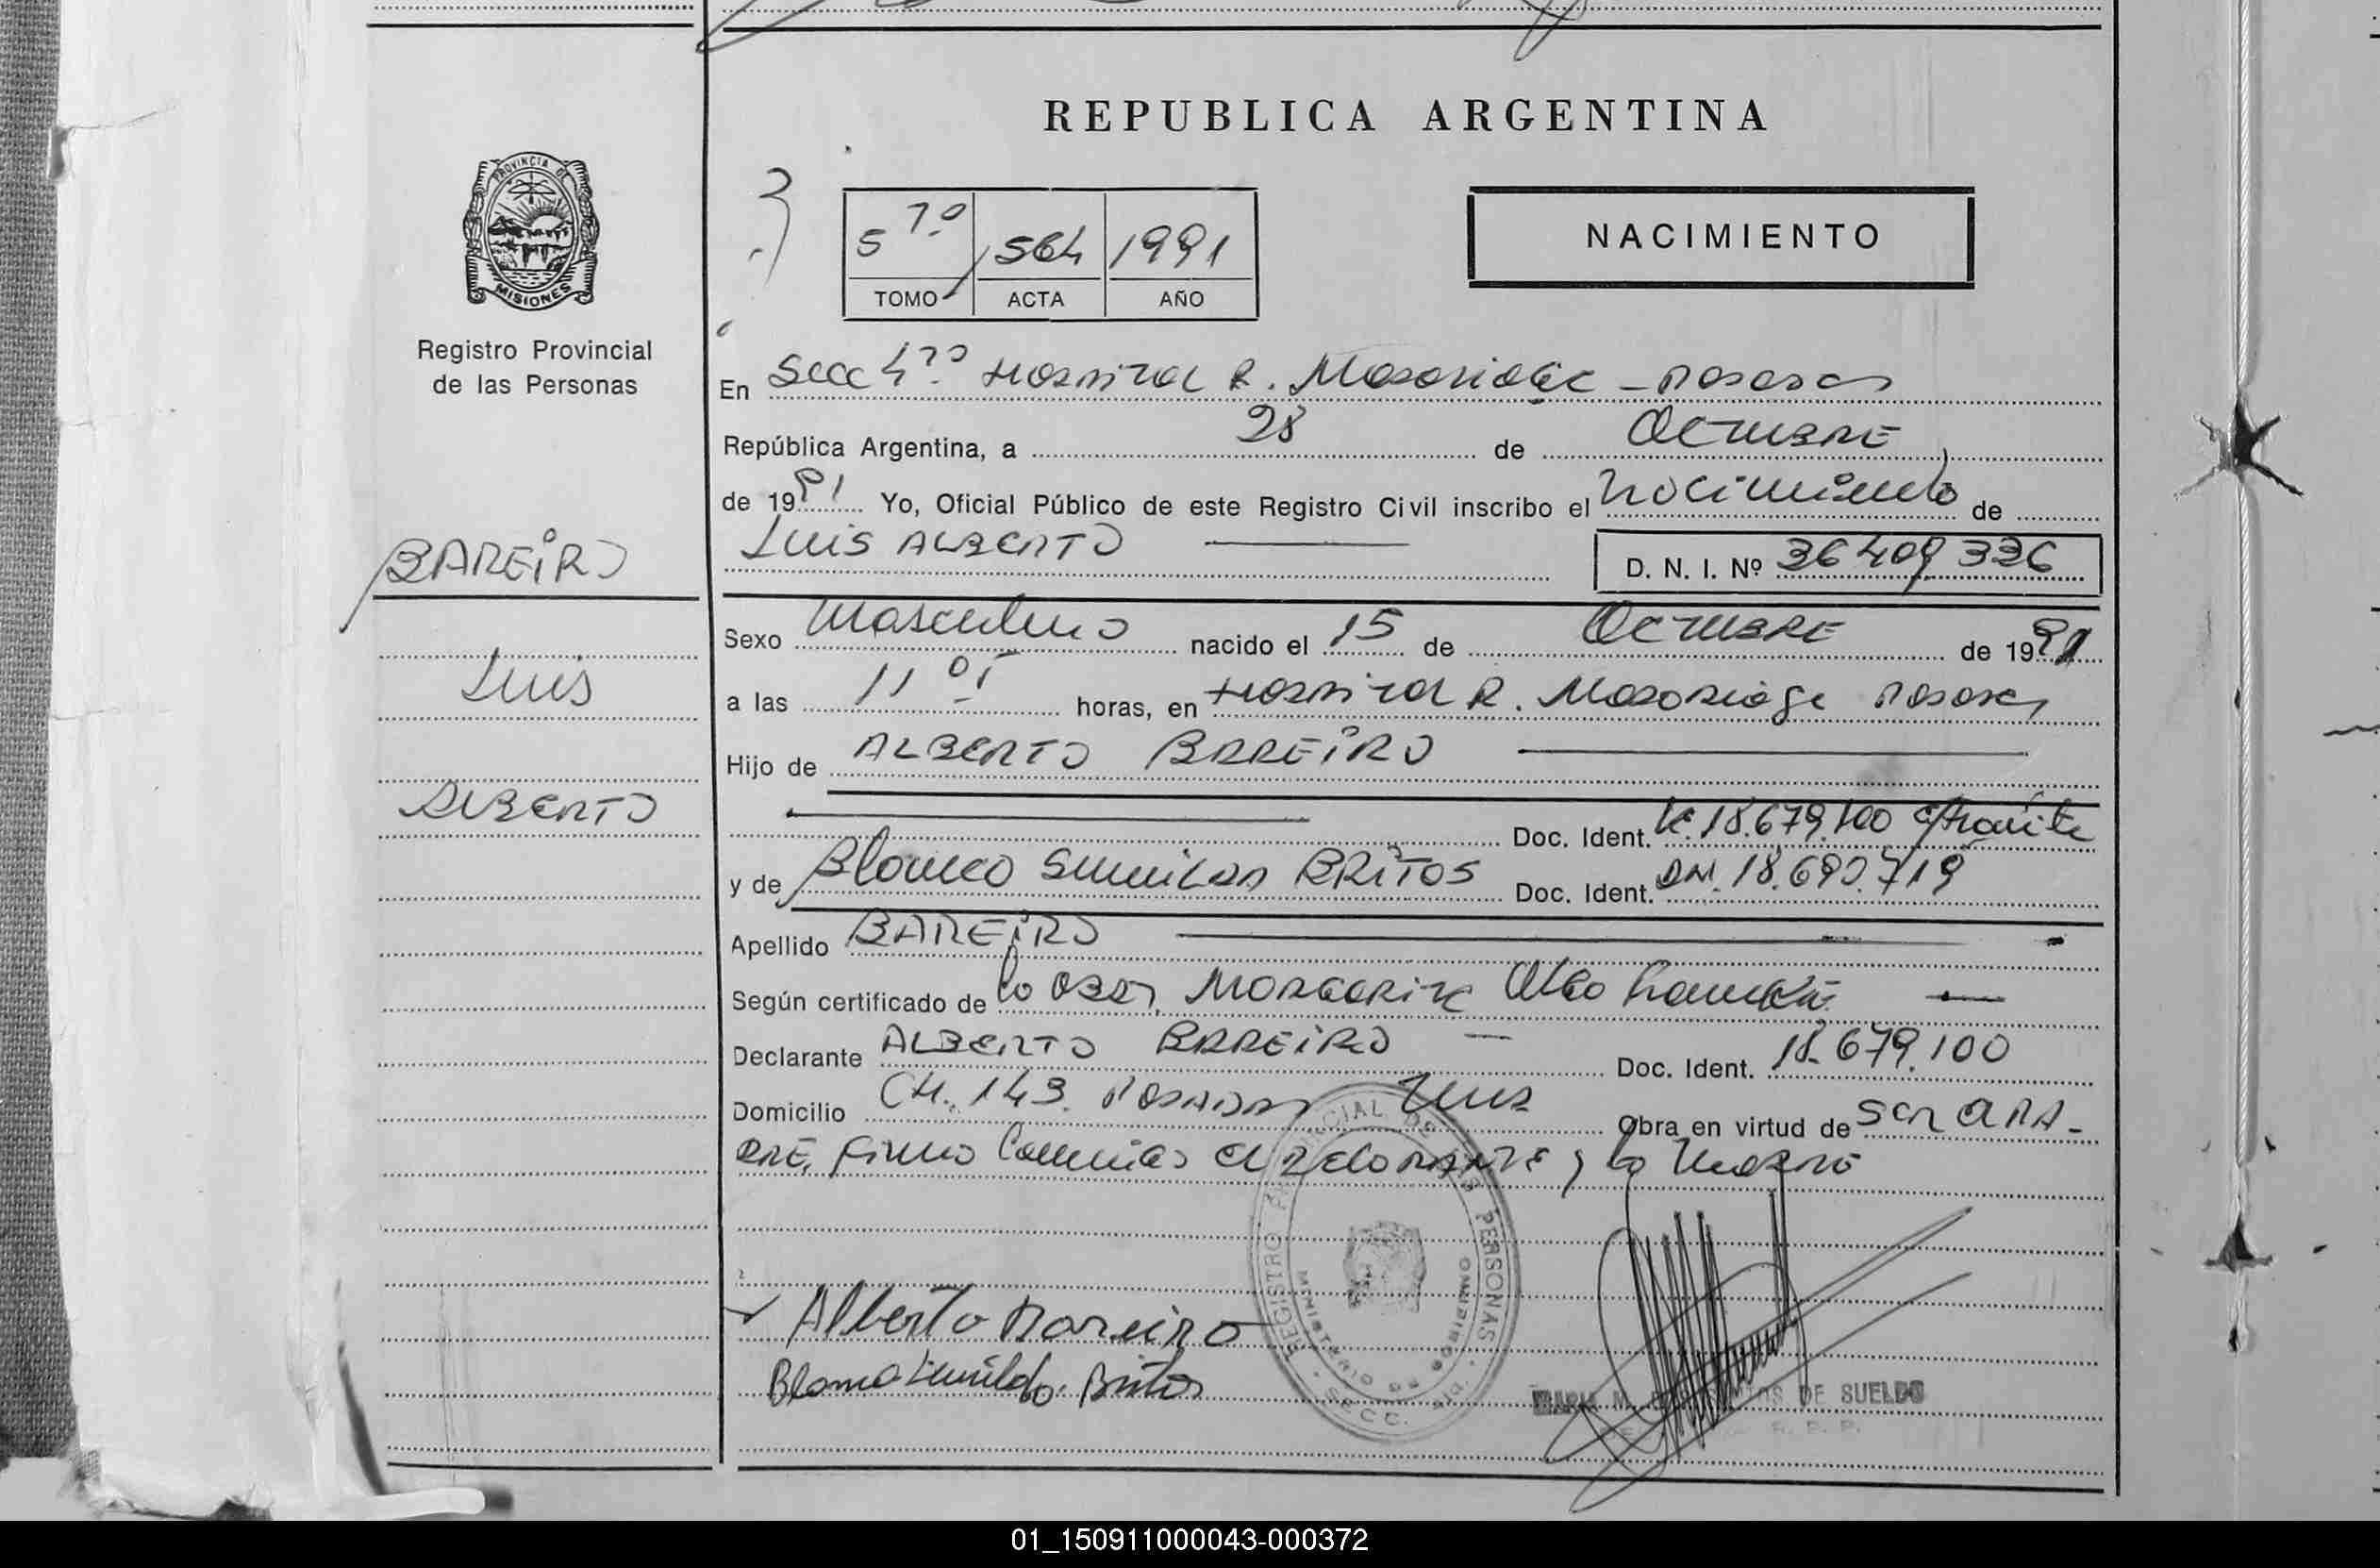 REPUBLICA ARGENTINA
PROVINCIA DE
MISIONES
Registro Provincial
de las Personas
5 7º 1564 1991
TOMO ACTA AÑO
NACIMIENTO
En Secc 4ta Hospital R. Madariaga - Posadas
República Argentina, a 28 de Octubre
de 1991 Yo, Oficial Público de este Registro Civil inscribo el nacimiento de
BAREIRO
LUIS ALBERTO
D. N. I. Nº 36409336
Sexo Masculino nacido el 15 de Octubre de 1991
Luis
a las 11 05 horas, en Hospital R. Madariaga Posadas
Hijo de ALBERTO BAREIRO
ALBERTO
Doc. Ident. 18.679.100 c/tramite
y de Blanca BRITOS Doc. Ident. DNI. 18.690.719
Apellido BAREIRO
Según certificado de la Obst. Margarita Olga
Declarante ALBERTO BAREIRO Doc. Ident. 18.679.100
Domicilio CH. 143. POSADAS Mnes Obra en virtud de ser PA-
DRE, firma conmigo el declarante y la madre
Alberto Bareiro
Blanca Britos
REGISTRO PROVINCIAL DE LAS PERSONAS
MINISTERIO DE GOBIERNO
SECC. 4ta.
MARIA M. DE SUELDO
01_150911000043-000372